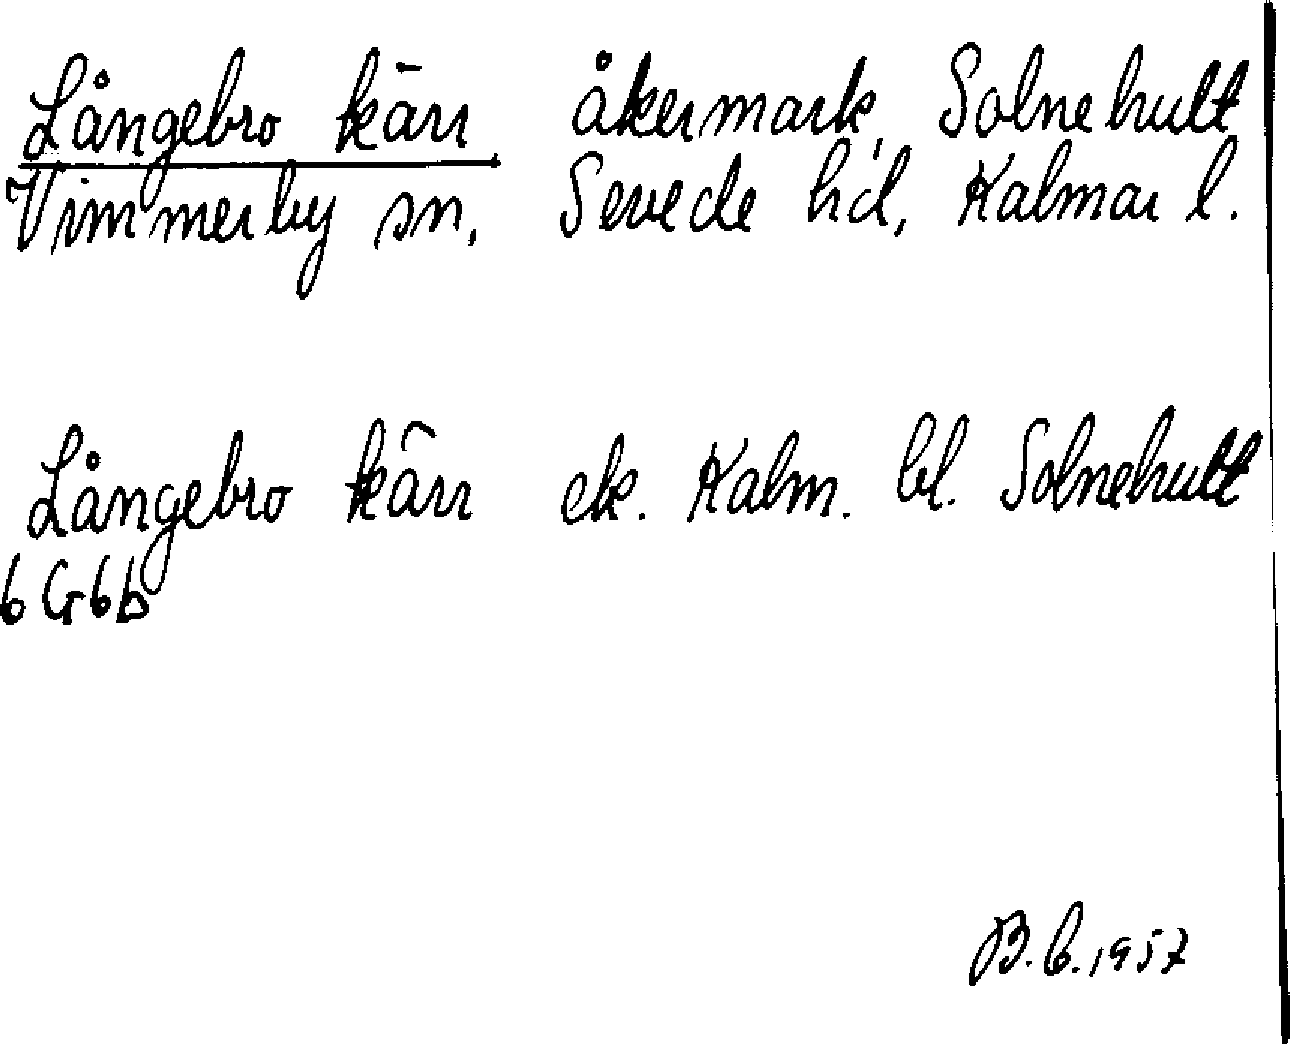 Långebro kärr åkermark, Solnehult
Vimmerby sn, Sevede hd, Kalmar l.
Långebro kärr ek. Kalm. bl. Solnehult
6G6b
B.C. 1957